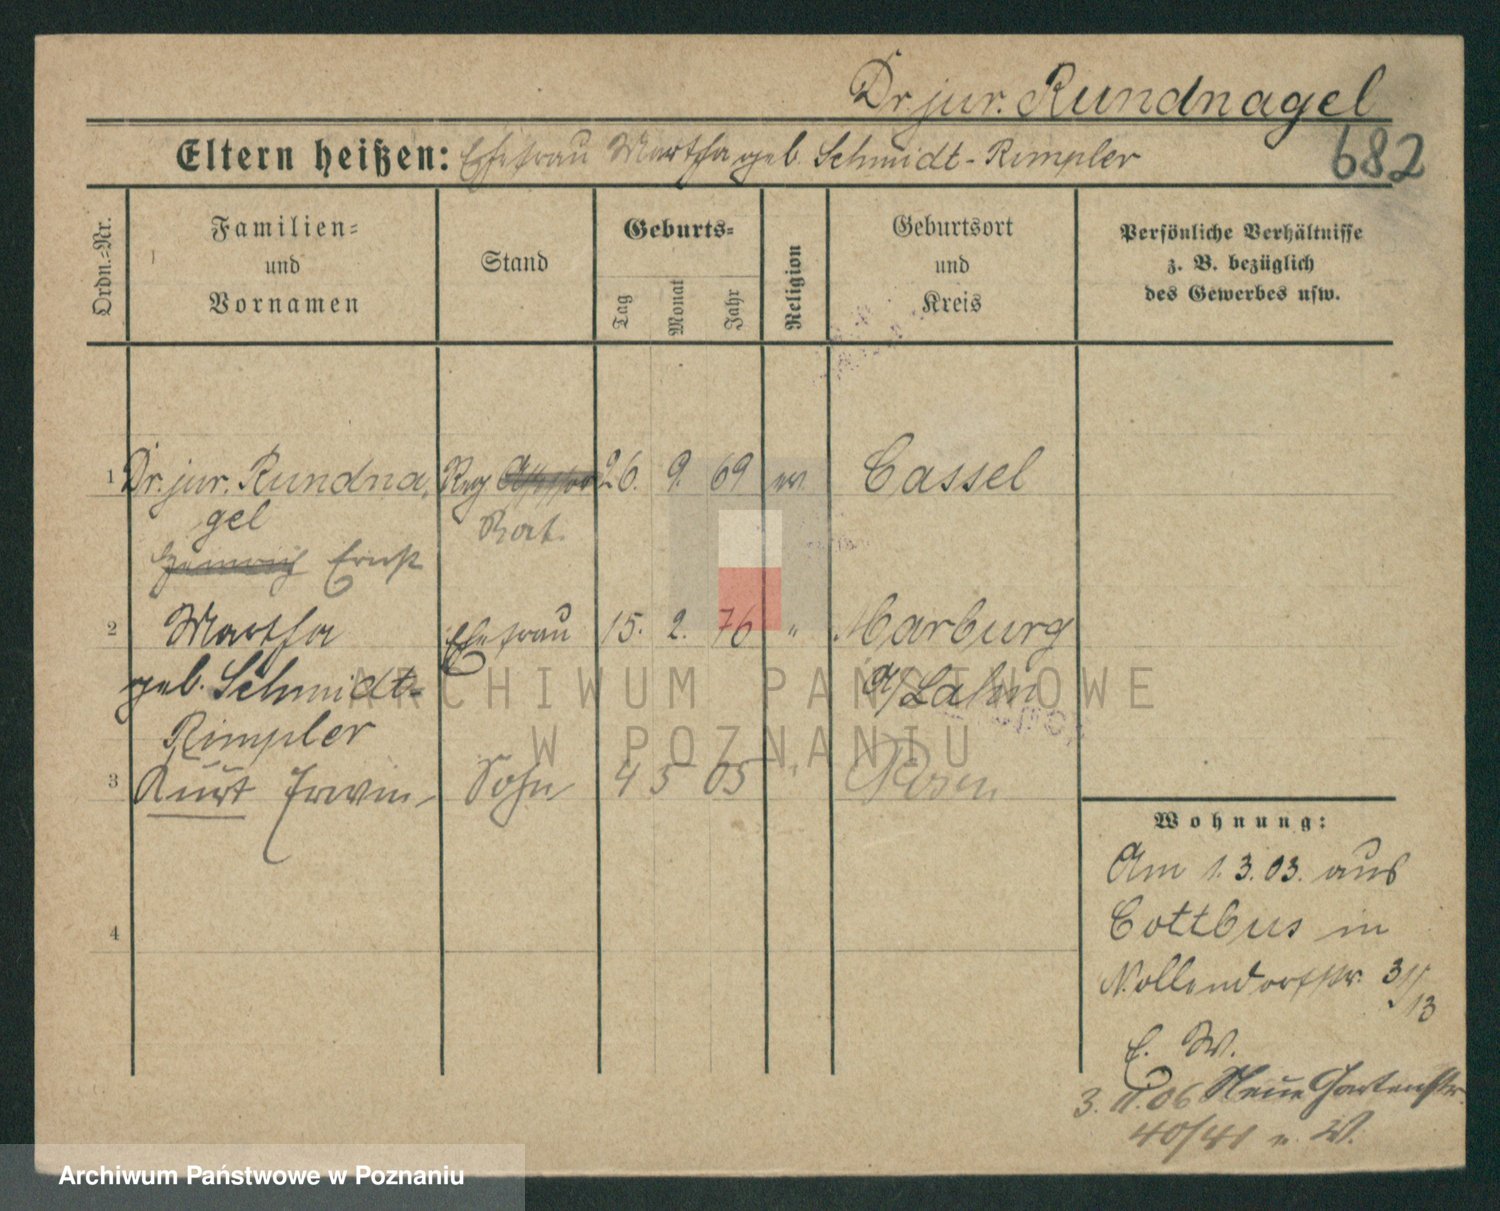 Dr. jur. Rundnagel
Eltern heißen: Ehefrau Martha geb. Schmidt-Rimpler
682
Ordn.-Nr.
Familien-
und
Vornamen
Stand
Geburts-
Tag
Monat
Jahr
Religion
Geburtsort
und
Kreis
Persönliche Verhältnisse
z. B. bezüglich
des Gewerbes usw.
1 Dr. jur. Rundna- Reg Assessor 26. 9. 69 ev. Cassel
gel Rat.
Heinrich Ernst
2 Martha Ehefrau 15. 2. 76 " Marburg
geb. Schmidt- a/Lahn
Rimpler
3 Kurt Erwin Sohn 4 5 05 " Posen
4
Wohnung:
Am 1.3.03. aus
Cottbus in
Nollendorfstr. 31/
13
E. W.
3. 11. 06 Neue Gartenstr.
40/41 n. W.
ARCHIWUM PAŃSTWOWE
W POZNANIU
Archiwum Państwowe w Poznaniu